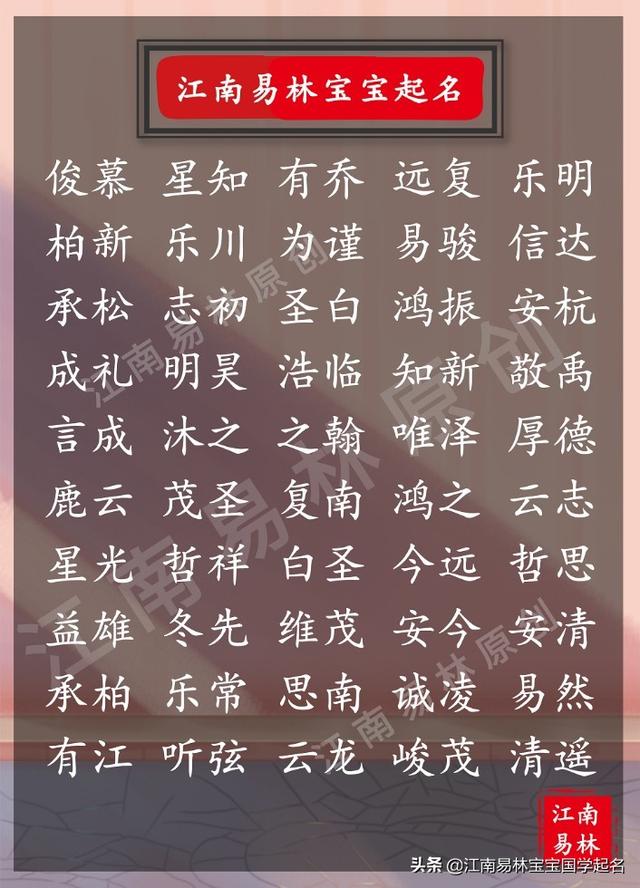 江南易林宝宝起名
俊慕 星知 有乔 远复 乐明
柏新 乐川 为谨 易骏 信达
承松 志初 圣白 鸿振 安杭
成礼 明昊 浩临 知新 敬禹
言成 沐之 之翰 唯泽 厚德
鹿云 茂圣 复南 鸿之 云志
星光 哲祥 白圣 今远 哲思
益雄 冬先 维茂 安今 安清
承柏 乐常 思南 诚凌 易然
有江 听弦 云龙 峻茂 清遥
江南易林原创
江南易林原创
江南易林原创
江南
易林
头条 @江南易林宝宝国学起名